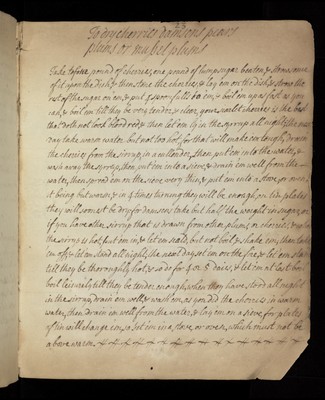 23
To dry cherries damsons pears
plums or muscel plums
Take to four pound of cherries, one pound of lump sugar beaten, & strow some
of it upon the dish, & then stone the cherries & lay om on the dish & strow the
rest of the sugar on om, & put spoonfulls to om, & boil om up as fast as you
can, & boil om till they be very tender, & clear, your smallest cherries is the best
that doth not look blood red, & then let om ly in the syrup all night, the next
day take warm water but not too hot for that will make om tough, drain
the cherries from the sirrup, in a cullender, then put om into the water, &
wash away the syrrup, then put om on to a sieve, & drain om well from the
water, then spread om on the sieve every thin, & put om into a stove, or oven
it being but warm, & in 4 times turning they will be enough, on tin plates
they will soonest be dry, for damsons take but half the weight in sugar, or
if you have other sirrup that is drawn from other plums or cherries,
the sirrup is hot put om in, & let om scald, but not boil, & shake om, then take
om off, & let om stand all night, the next day set om on the fire, & let om stand
till they be thoroughly hot, & so do for 4 or 5 daies, & let om at last
boil leisurely till they be tender enough, when they have stood all night
in the sirrup, drain om well, & wash om, as you did the cherries in warm
water, then drain om well from the water, & lay om on a sieve, for plates
of tin will change om, so set om in a stove or oven, which must not be
above warm